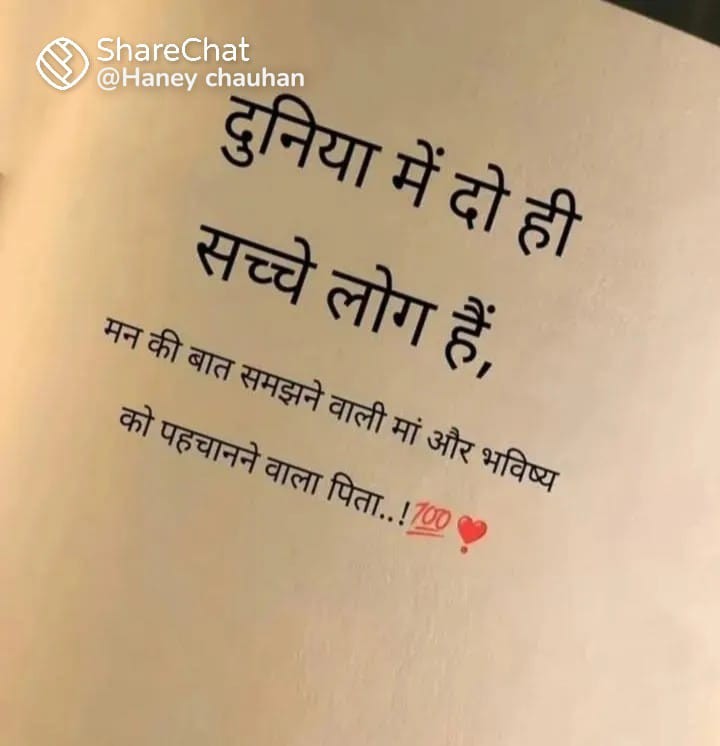 ShareChat
@Haney chauhan
दुनिया में दो ही
सच्चे लोग हैं,
मन की बात समझने वाली मां और भविष्य
को पहचानने वाला पिता..!💯❣️